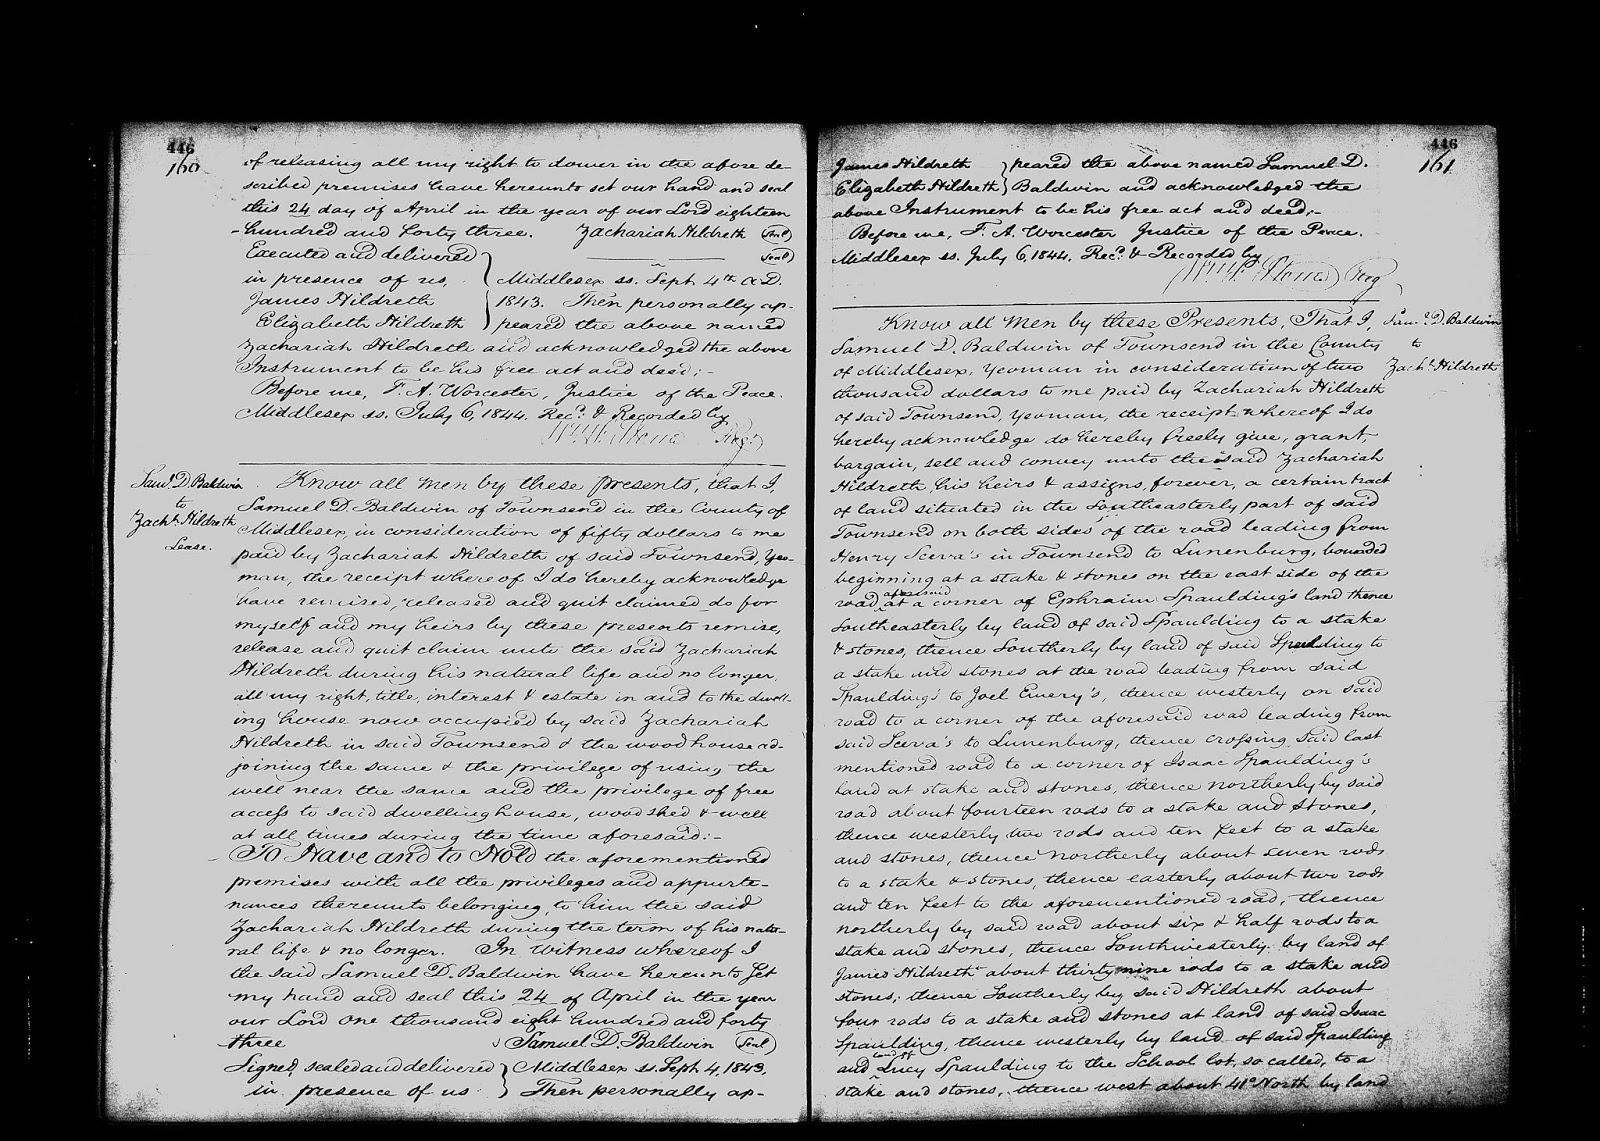 446
160
of releasing all my right to dower in the afore de-
scribed premises have hereunto set our hand and seal
this 24 day of April in the year of our Lord eighteen
hundred and forty three. Zachariah Hildreth (Seal)
Executed and delivered (Seal)
in presence of us, Middlesex ss. Sept. 4th A.D.
James Hildreth 1843. Then personally ap-
Elizabeth Hildreth peared the above named
Zachariah Hildreth and acknowledged the above
Instrument to be his free act and deed;-
Before me, F. A. Worcester, Justice of the Peace.
Middlesex ss. July 6, 1844. Recd. & Recorded by
Reg.
Saml. D. Baldwin
to
Zach. Hildreth
Lease.
Know all men by these presents, that I,
Samuel D. Baldwin of Townsend in the County of
Middlesex, in consideration of fifty dollars to me
paid by Zachariah Hildreth of said Townsend, Yeo-
man, the receipt whereof I do hereby acknowledge
have remised, released and quit claimed do for
myself and my heirs by these presents remise,
release and quit claim unto the said Zachariah
Hildreth during his natural life and no longer,
all my right, title, interest & estate in and to the dwell-
ing house now occupied by said Zachariah
Hildreth in said Townsend & the wood house ad-
joining the same & the privilege of using the
well near the same and the privilege of free
access to said dwelling house, wood shed & well
at all times during the time aforesaid:-
To Have and to Hold the aforementioned
premises with all the privileges and appurte-
nances thereunto belonging, to him the said
Zachariah Hildreth during the term of his natu-
ral life & no longer. In witness whereof I
the said Samuel D. Baldwin have hereunto set
my hand and seal this 24 of April in the year
our Lord One thousand eight hundred and forty
three Samuel D. Baldwin (Seal)
Signed, sealed and delivered Middlesex ss. Sept. 4, 1843,
in presence of us Then personally ap-
446
161
James Hildreth peared the above named Samuel D.
Elizabeth Hildreth Baldwin and acknowledged the
above Instrument to be his free act and deed;-
Before me, F. A. Worcester Justice of the Peace.
Middlesex ss. July 6, 1844. Recd. & Recorded by
Reg
Saml. D. Baldwin
to
Zach. Hildreth
Know all Men by these Presents, That I,
Samuel D. Baldwin of Townsend in the County
of Middlesex, Yeoman in consideration of two
thousand dollars to me paid by Zachariah Hildreth
of said Townsend, Yeoman, the receipt whereof I do
hereby acknowledge do hereby freely give, grant,
bargain, sell and convey unto the said Zachariah
Hildreth, his heirs & assigns, forever, a certain tract
of land situated in the Southeasterly part of said
Townsend on both sides of the road leading from
Henry Sceva's in Townsend to Lunenburg, bounded
beginning at a stake & stones on the east side of the
road aforesaid at a corner of Ephraim Spaulding's land thence
Southeasterly by land of said Spaulding to a stake
& stones, thence Southerly by land of said Spaulding to
a stake and stones at the road leading from said
Spaulding's to Joel Emery's, thence westerly on said
road to a corner of the aforesaid road leading from
said Sceva's to Lunenburg, thence crossing said last
mentioned road to a corner of Isaac Spaulding's
land at stake and stones, thence Northerly by said
road about fourteen rods to a stake and stones,
thence westerly two rods and ten feet to a stake
and stones, thence Northerly about seven rods
to a stake & stones, thence easterly about two rods
and ten feet to the aforementioned road, thence
northerly by said road about six & half rods to a
stake and stones, thence Southwesterly by land of
James Hildreth about thirty nine rods to a stake and
stones; thence Southerly by said Hildreth about
four rods to a stake and stones at land of said Isaac
Spaulding, thence westerly by land of said Spaulding
and land of Lucy Spaulding to the School lot, so called, to a
stake and stones, thence west about 41° North by land